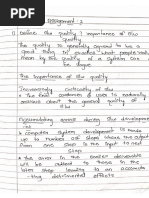 Assignment - 2
Define the quality? importance of the quality
The quality is generally agreed to be a good thing. In practice what people mean by the quality of a system can be vague
The Importance of the quality
Increasing criticality of
the final customer or user is naturally anxious about the general quality of
Accumulating errors during the development
Computer system development is made up of number of steps where the output from one step is the input to next step.
the errors in the earlier deliverable will be added to those in the later steps leading to an accumulated detrimental effects